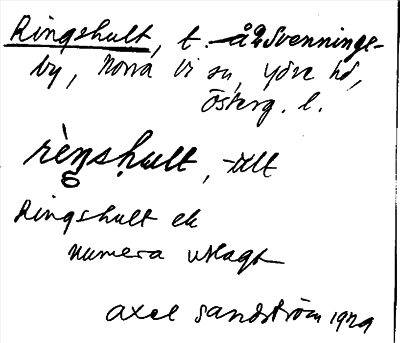 Ringshult, t. Svenninge-
by, Norra Vi sn, Ydre hd,
Österg. l.
rèŋsḥult, -ult
Ringshult ek
numera utlagt
Axel Sandström 1929